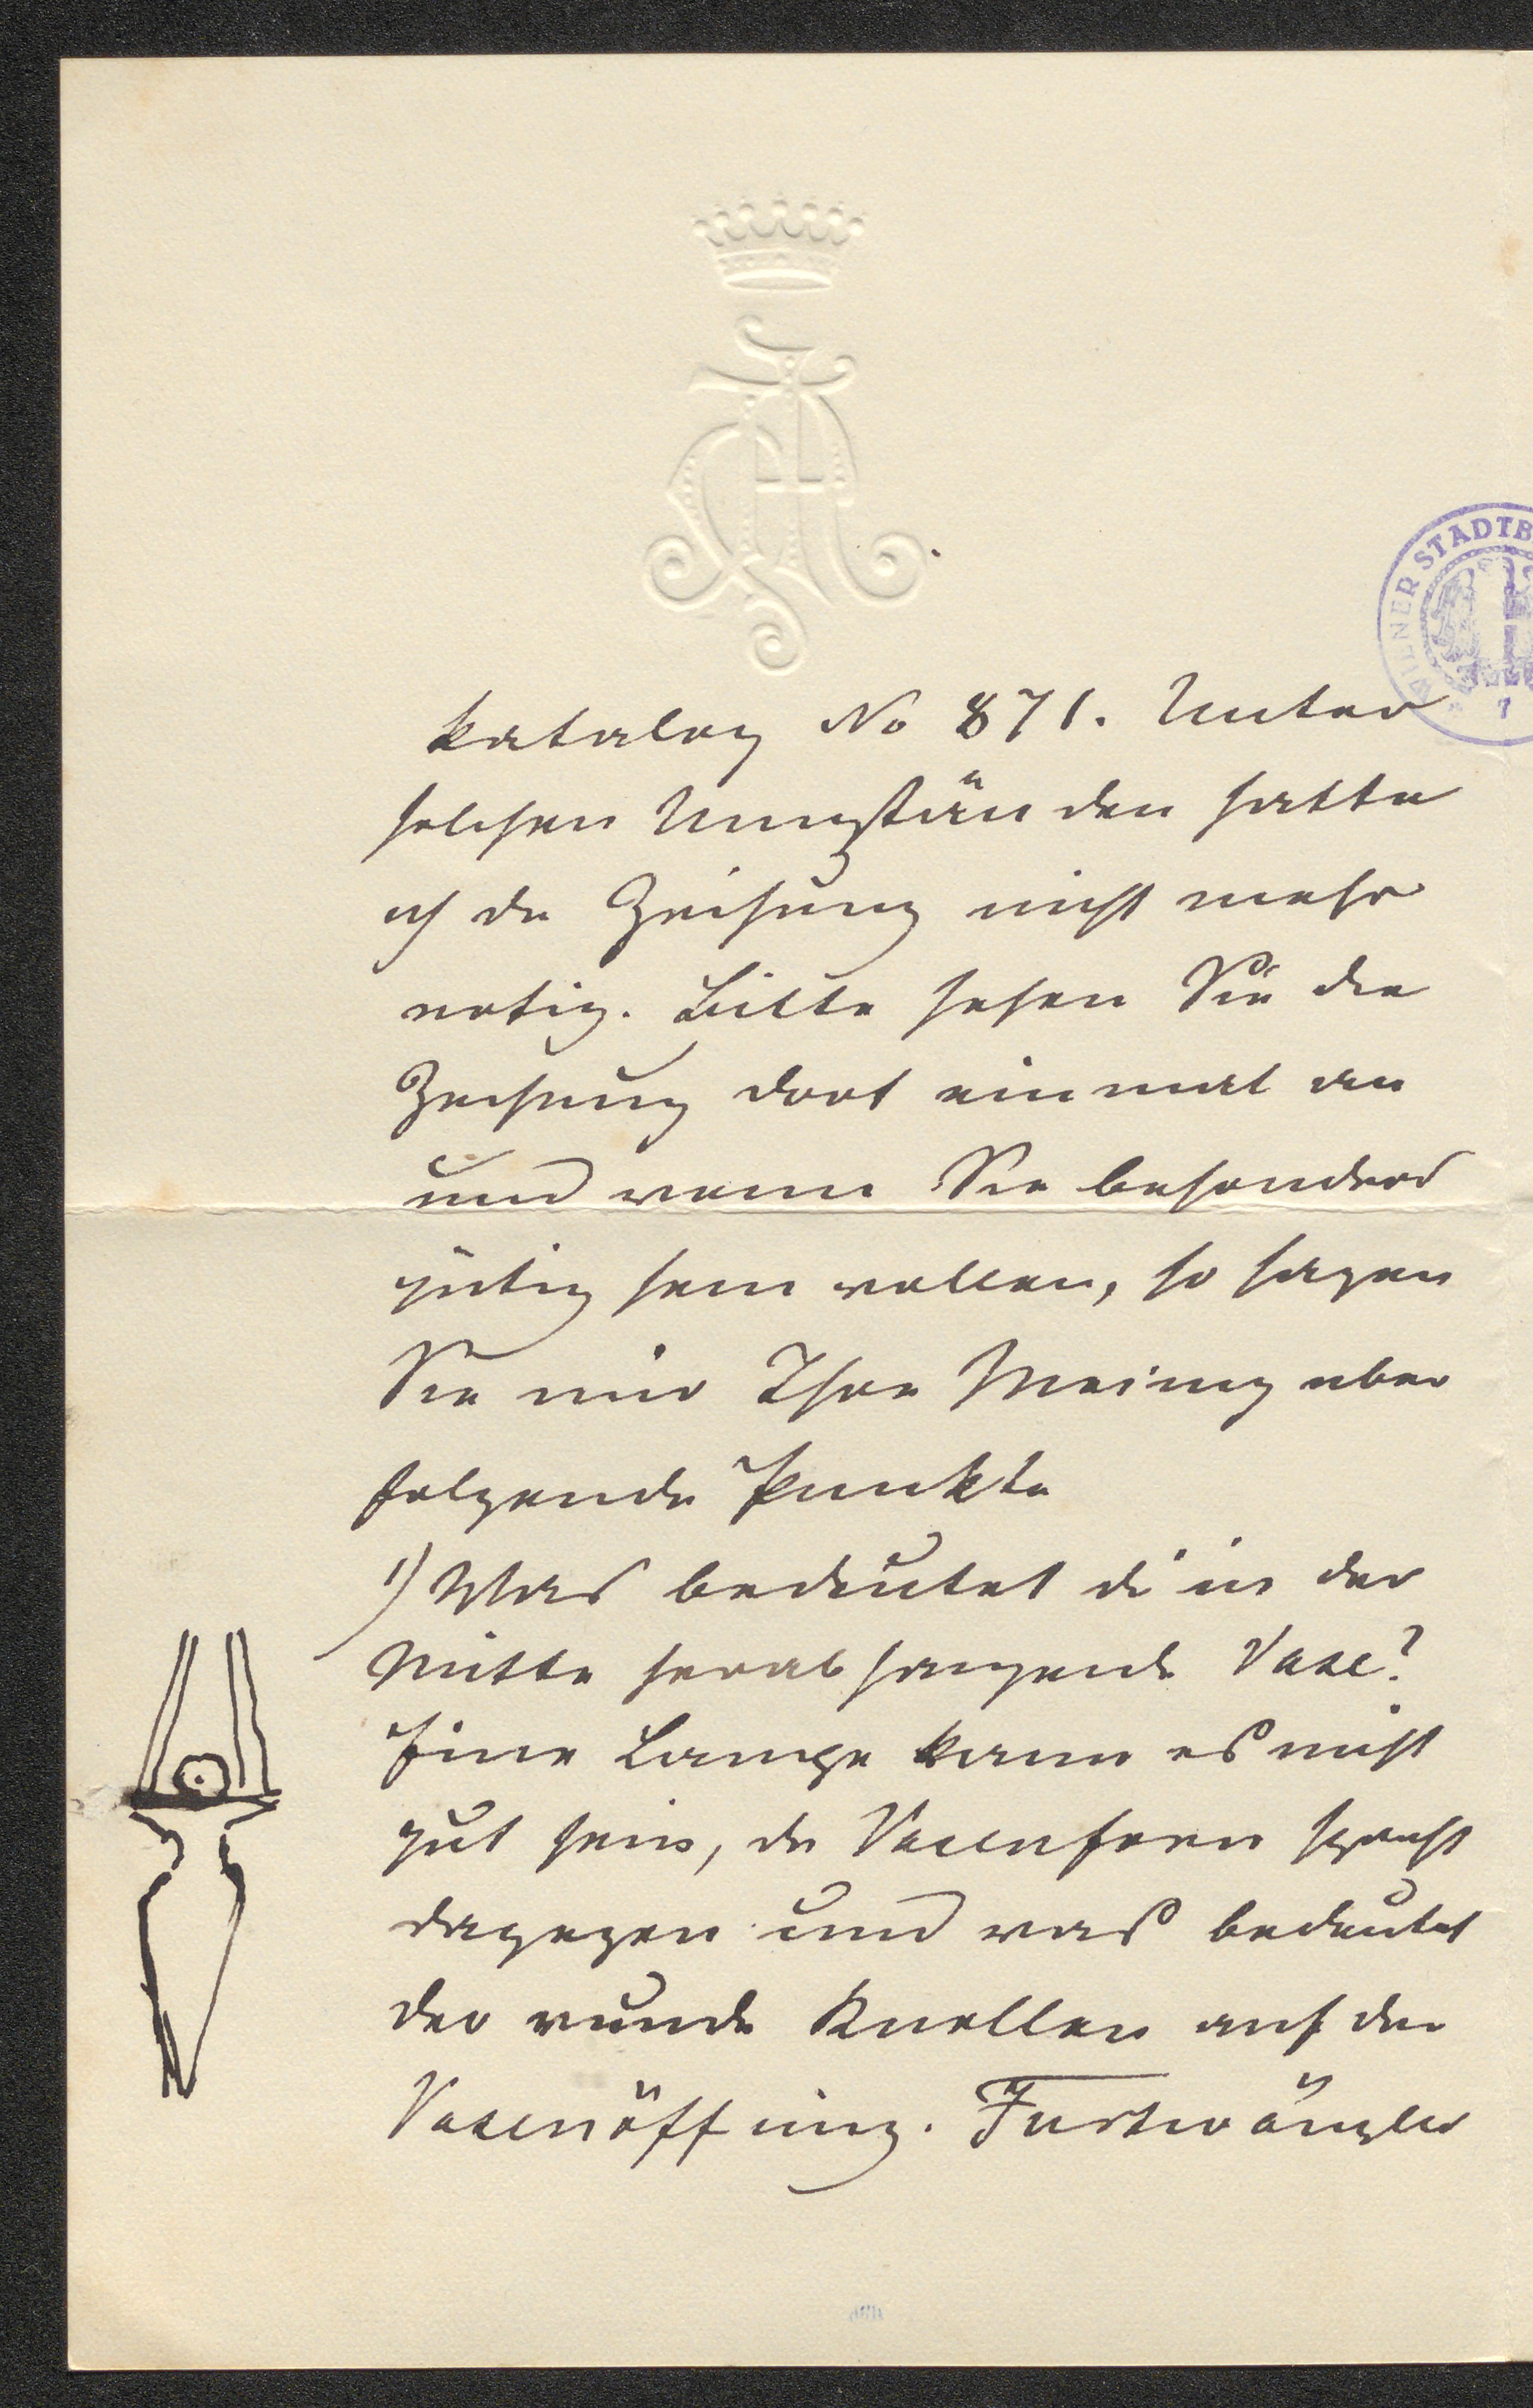 WIENER STADTB
7
Katalog No 871. Unter
solchen Umständen hatte
ich die Zeichnung nicht mehr
nötig. Bitte sehen Sie die
Zeichnung dort einmal an
und wenn Sie besonders
gütig sein wollen, so sagen
Sie mir Ihre Meinung über
folgende Punkte
1) Was bedeutet die in der
Mitte herabhangende Vase?
Eine Lampe kann es nicht
gut sein, die Vasenform spricht
dagegen und was bedeutet
der runde Knollen auf der
Vasenöffnung. Furtwängler